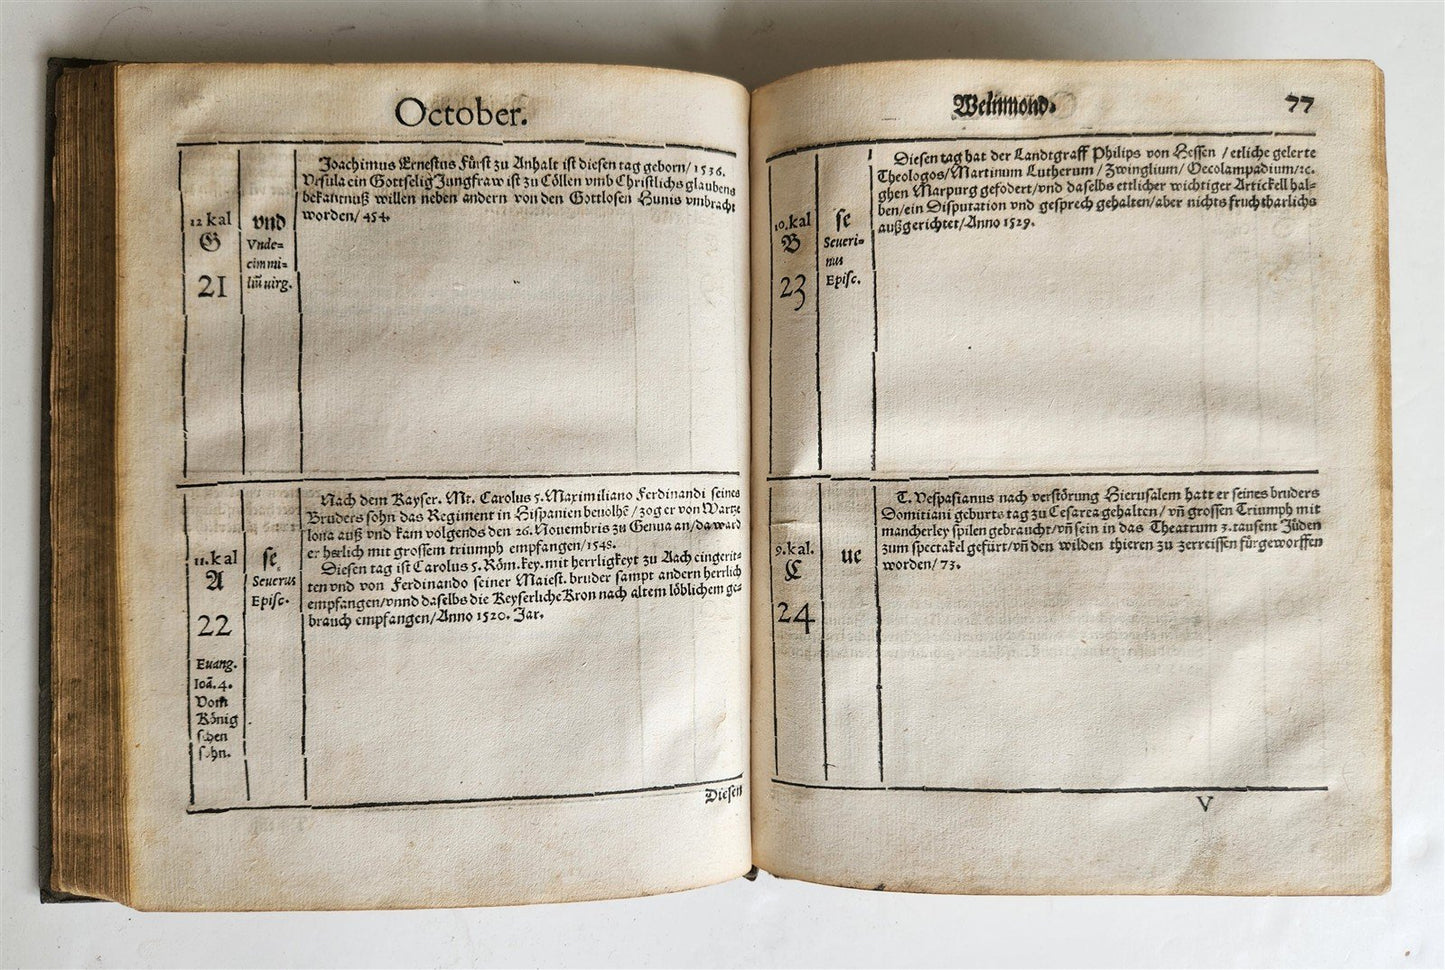 October.
12 kal
G
21
vnd
Vnde=
cim mi=
liū uirg.
Joachimus Ernestus Fürst zu Anhalt ist diesen tag geborn/ 1536.
Vrsula ein Gottselig Jungfraw ist zu Cöllen vmb Christlichs glaubens
bekantnuß willen neben andern von den Gottlosen Hunis vmbracht
worden/ 454.
11.kal
A
22
Euang.
Ioā.4.
Vom
König
schen
sohn.
se
Seuerus
Episc.
Nach dem Kayser. Mt. Carolus 5. Maximiliano Ferdinandi seines
Bruders sohn das Regiment in Hispanien beuolhē/ zog er von
lona auß vnd kam volgends den 26. Nouembris zu Genua an/ da ward
er herlich mit grossem triumph empfangen/ 1548.
Diesen tag ist Carolus 5. Röm. key. mit herrligkeyt zu Aach eingerit=
ten vnd von Ferdinando seiner Maiest. bruder sampt andern herrlich
empfangen/vnnd daselbs die Keyserliche Kron nach altem löblichem ge=
brauch empfangen/Anno 1520. Jar.
Diesen
Weinmond.
77
10.kal
B
23
se
Seueri=
nus
Episc.
Diesen tag hat der Landtgraff Philips von Hessen / etliche gelerte
Theologos/Martinum Lutherum / Zwinglium/ Oecolampadium/ɾc.
ghen Marpurg gefodert/vnd daselbs ettlicher wichtiger Artickell hal=
ben/ein Disputation vnd gesprech gehalten/aber nichts fruchtbarlichs
außgerichtet/Anno 1529.
9.kal.
C
24
ue
T. Vespasianus nach verstörung Hierusalem hatt er seines bruders
Domitiani geburts tag zu Cesarea gehalten/ vñ grossen Triumph mit
mancherley spilen gebraucht/vñ sein in das Theatrum 3. tausent Jüden
zum spectakel gefürt/vñ den wilden thieren zu zerreissen fürgeworffen
worden/ 73.
V